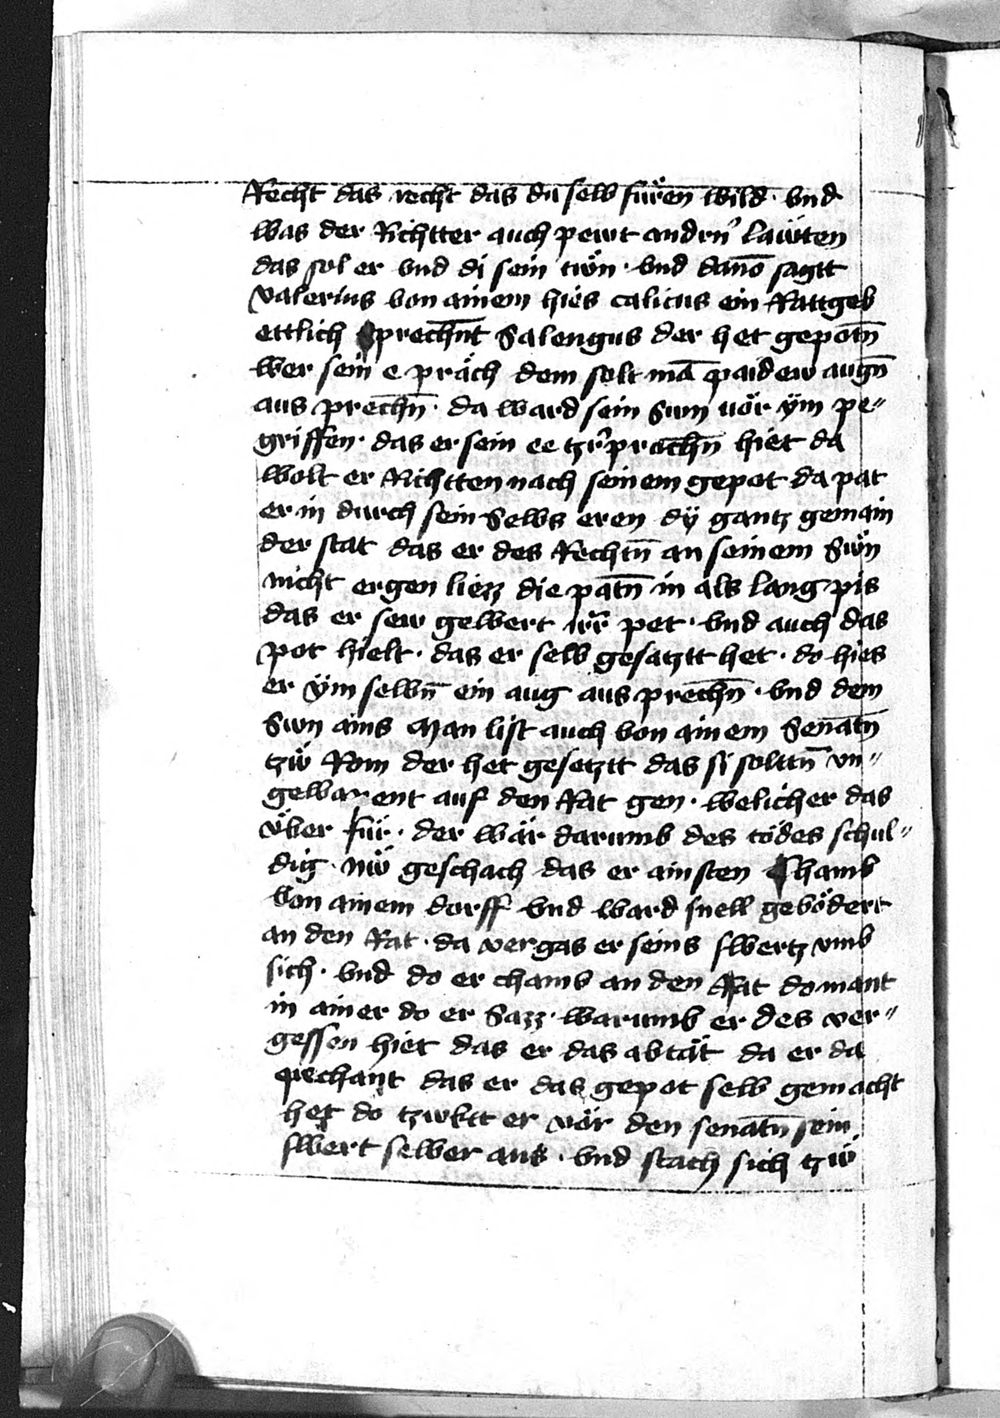 Recht das recht das du selb füren wild · vnd
was der Richtter auch pewt andrn̄ läwten
das sol er vnd di sein twn · vnd dauō sagtt
valerius von ainem hies calicus ein Rattgeb
ettlich sprechn̄t Salengus der het gepotn̄
wer sein e präch dem solt mā paidew augn̄
aus prechn̄ · da ward sein Swn vör ÿm pe〃
griffen · das er sein ee tzr̄prochn̄ hiet da
wolt er Richtten nach seinem gepot da pat
er in durch sein Selbs eren dÿ gantz gemain
der stat das er des Rechtn̄ an seinem Swn
nicht ergen liezz die patn̄ in als lang pis
das er sew gewert irr̄ pet · vnd auch das
pot hielt · das er selb gesatztt het · do hies
er ÿm selbn̄ ein aug aus prechn̄ · vnd dem
Swn ains Man list auch von ainem Senatn̄
tzw Rom der het gesetztt das si soltn̄ vn〃
gewarent auf den Rat gen · welicher das
vber für · der wär darumb des tödes schul〃
dig · nw geschach das er ainsten chamb
von ainem dorff vnd ward snell gevödert
an den Rat · da vergas er seins swertz vmb
sich · vnd do er chamb an den Rat do mant
in ainer do er Sazz · warumb er des ver〃
gessen hiet das er das abtät da er da
pechant das er das gepot selb gemacht
het do tzuktt er vör den senatn̄ sein
swert selber aus · vnd stach sich tzw